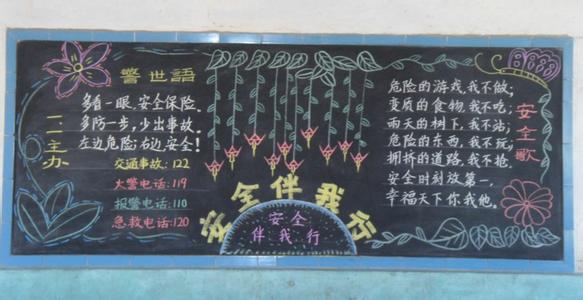 警世語
多看一眼、安全保险。
多防一步,少出事故。
左边危险;右边安全!
交通事故:122
火警电话:119
报警电话:110
急救电话:120
二一主办
安全伴我行
安全
伴我行
危险的游戏,我不做;
变质的食物,我不吃;
雨天的树下,我不站;
危险的东西,我不玩;
拥挤的道路,我不抢。
安全时刻放第一,
幸福天下你我他。
安全歌